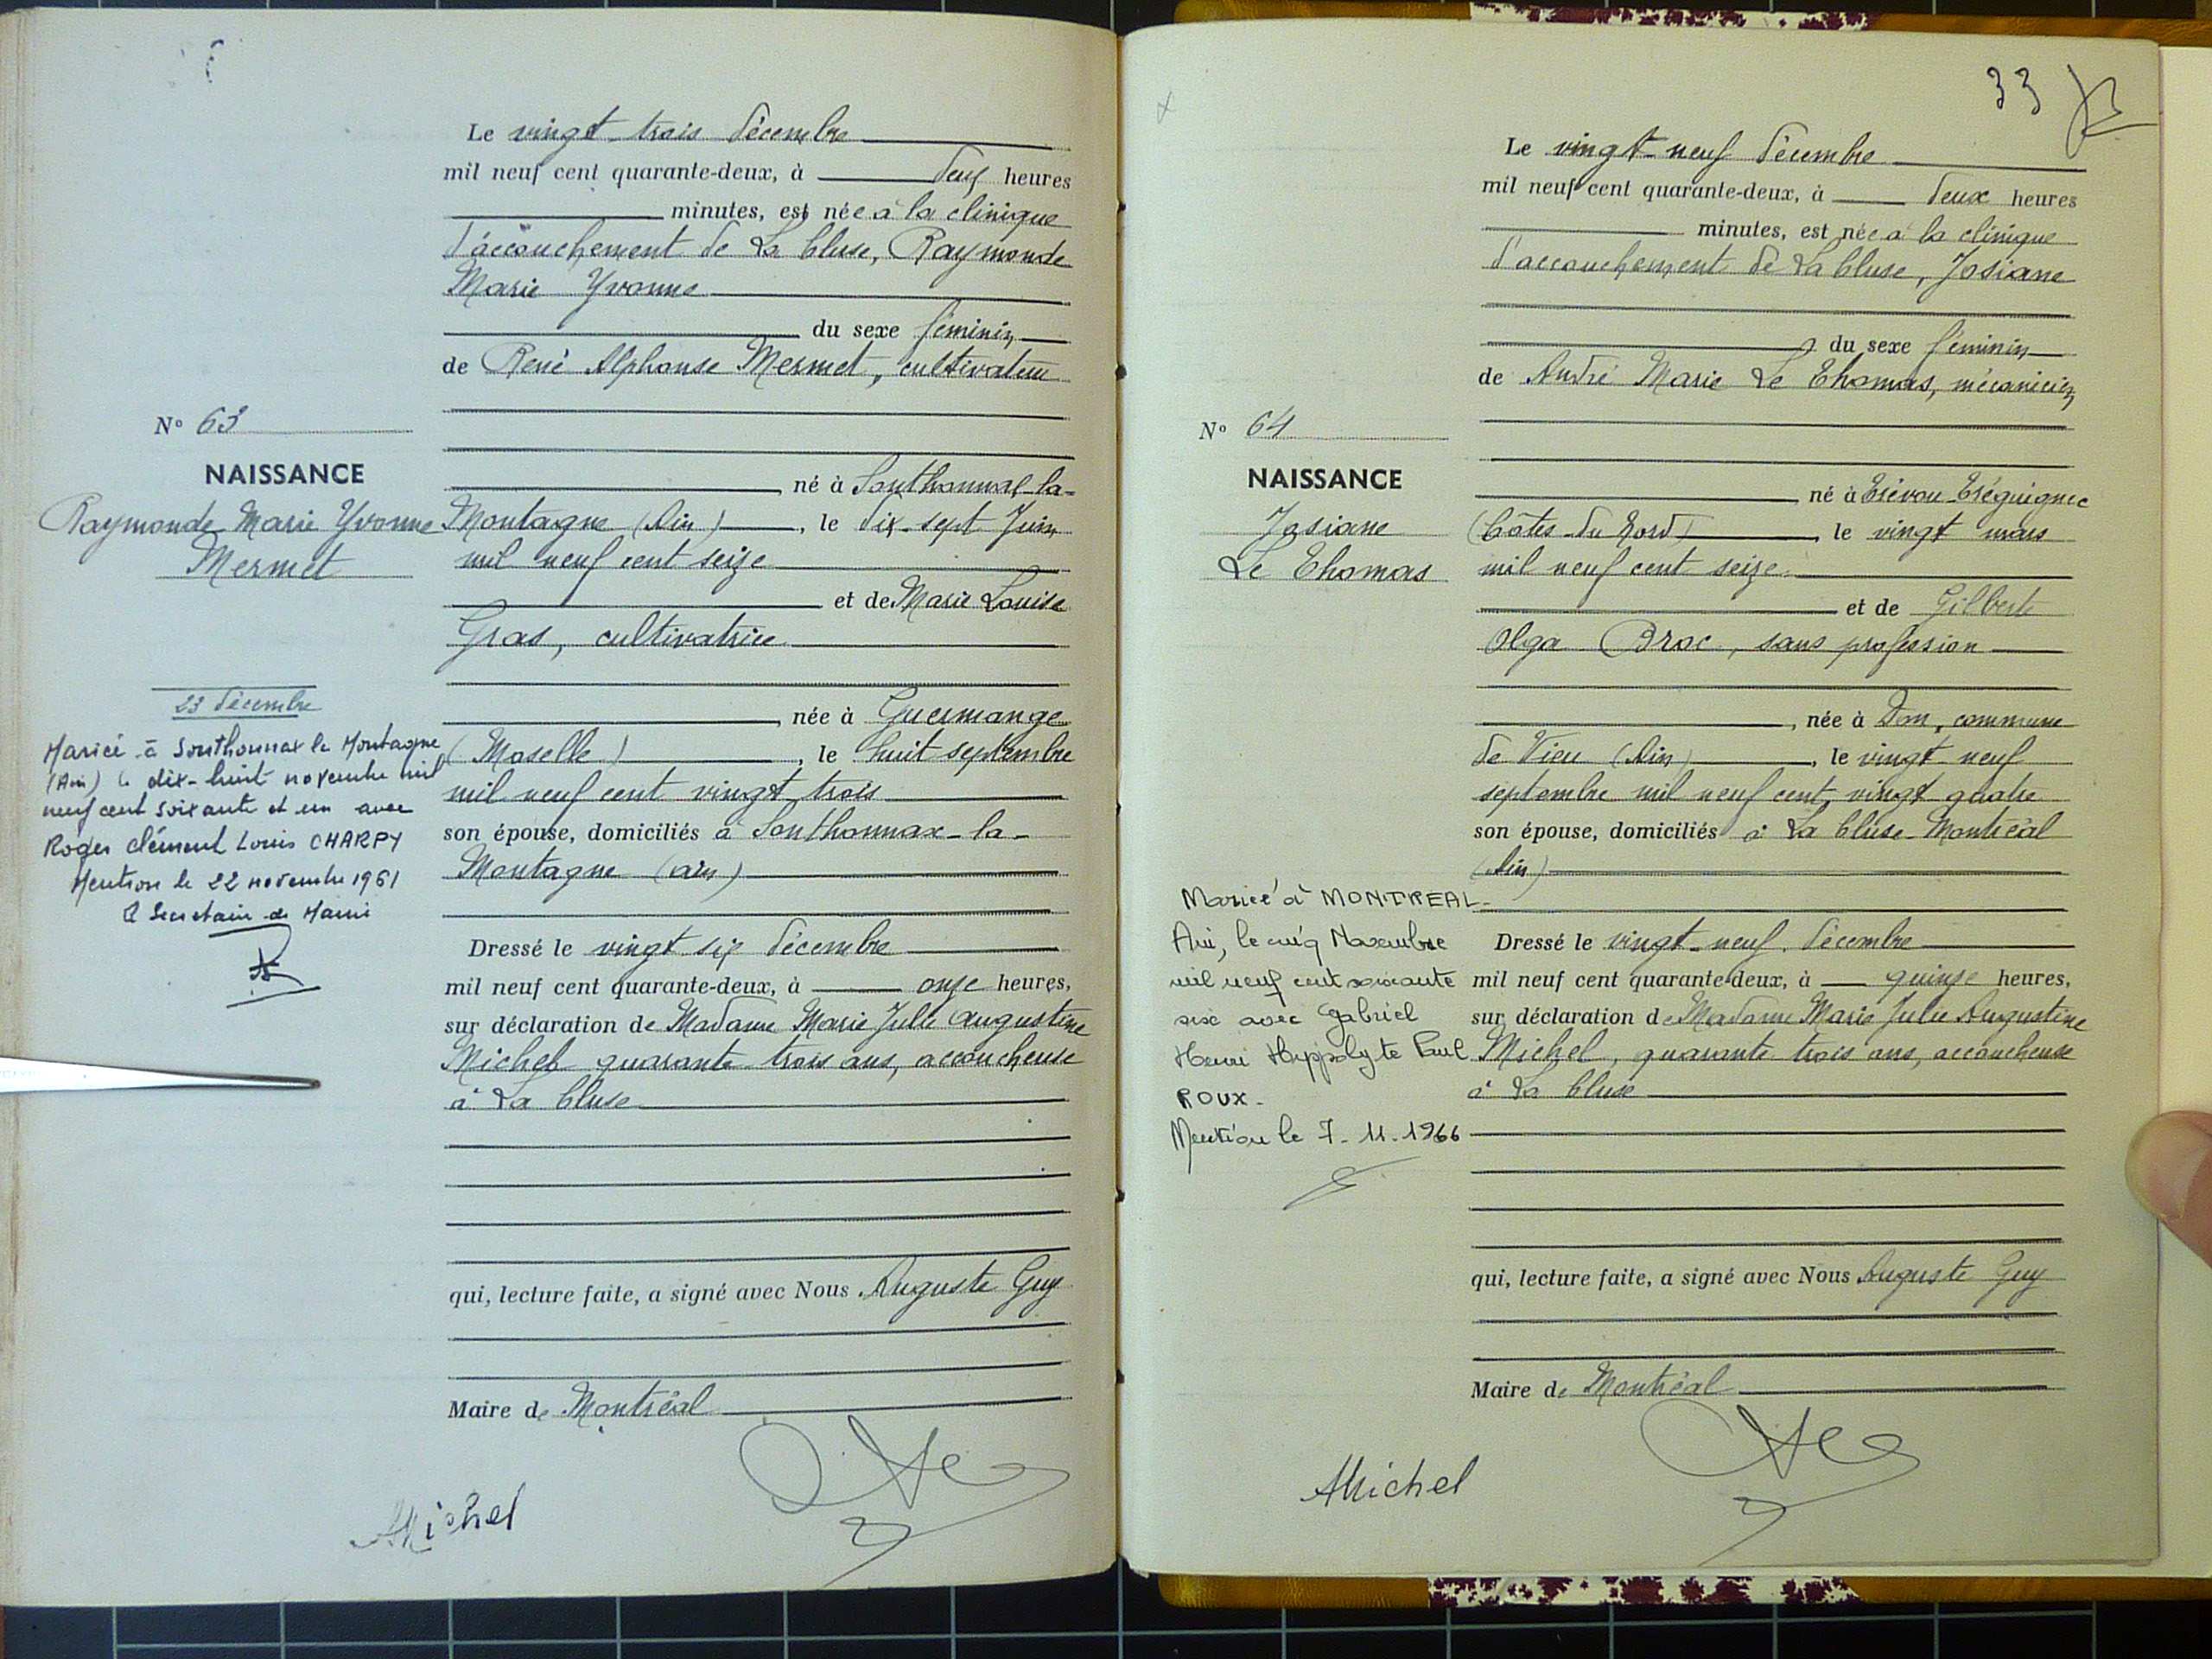 Le vingt-trois décembre
mil neuf cent quarante-deux, à neuf heures
minutes, est née à la clinique
d'accouchement de La Cluse, Raymonde
Marie Yvonne
du sexe féminin
de René Alphonse Mermet, cultivateur
N° 63
NAISSANCE
Raymonde Marie Yvonne
Mermet
né à Sonthonnax-la-
Montagne (Ain), le dix-sept Juin
mil neuf cent seize
et de Marie Louise
Gras, cultivatrice
née à Guermange
(Moselle), le huit septembre
mil neuf cent vingt trois
son épouse, domiciliés à Sonthonnax-la-
Montagne (ain)
23 décembre
Mariée à Sonthonnax la Montagne
(Ain) le dix-huit novembre mil
neuf cent soixante et un avec
Roger Clément Louis CHARPY
Mention le 22 novembre 1961
Le Secrétaire de Mairie
Dressé le vingt six décembre
mil neuf cent quarante-deux, à onze heures,
sur déclaration de Madame Marie Julie Augustine
Michel quarante trois ans, accoucheuse
à La Cluse
qui, lecture faite, a signé avec Nous Auguste Guy
Maire de Montréal
AMichel
33
Le vingt-neuf décembre
mil neuf cent quarante-deux, à deux heures
minutes, est née à la clinique
d'accouchement de La Cluse, Josiane
du sexe féminin
de André Marie Le Thomas, mécanicien
N° 64
NAISSANCE
Josiane
Le Thomas
né à Trévou-Tréguignec
(Côtes-du-Nord), le vingt mars
mil neuf cent seize
et de Gilberte
Olga Broc, sans profession
née à Don, commune
de Vieu (Ain), le vingt-neuf
septembre mil neuf cent vingt quatre
son épouse, domiciliés à La Cluse-Montréal
(Ain)
Mariée à MONTREAL-
Ain, le cinq Novembre
mil neuf cent soixante
six avec Gabriel
Henri Hippolyte Paul
ROUX-
Mention le 7-11-1966
Dressé le vingt-neuf décembre
mil neuf cent quarante-deux, à quinze heures,
sur déclaration de Madame Marie Julie Augustine
Michel, quarante trois ans, accoucheuse
à La Cluse
qui, lecture faite, a signé avec Nous Auguste Guy
Maire de Montréal
AMichel